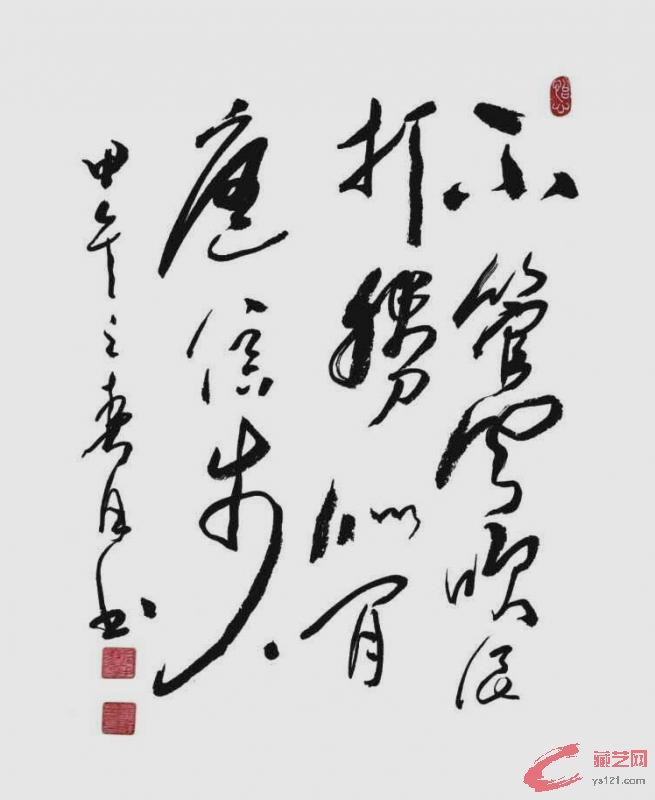 不管风吹浪
打胜似闲
庭信步
甲午之春月书
藏艺网
ys121.com